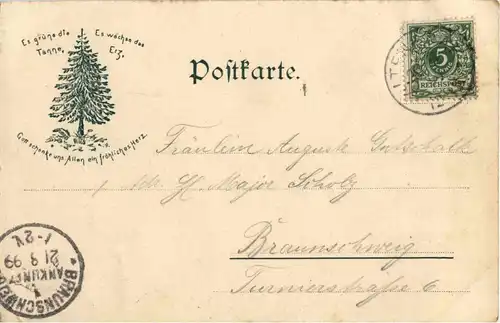 Es grüne die Tanne, Es wachse das Erz,
Gott schenke uns Allen ein fröhliches Herz.
Postkarte.
5
REICHSPOST
Fräulein Auguste Gutschalk
Major Scholz
Braunschweig
Turnierstraße 6
BRAUNSCHWEIG
ANKUNFT
21.8.99
1-2N.